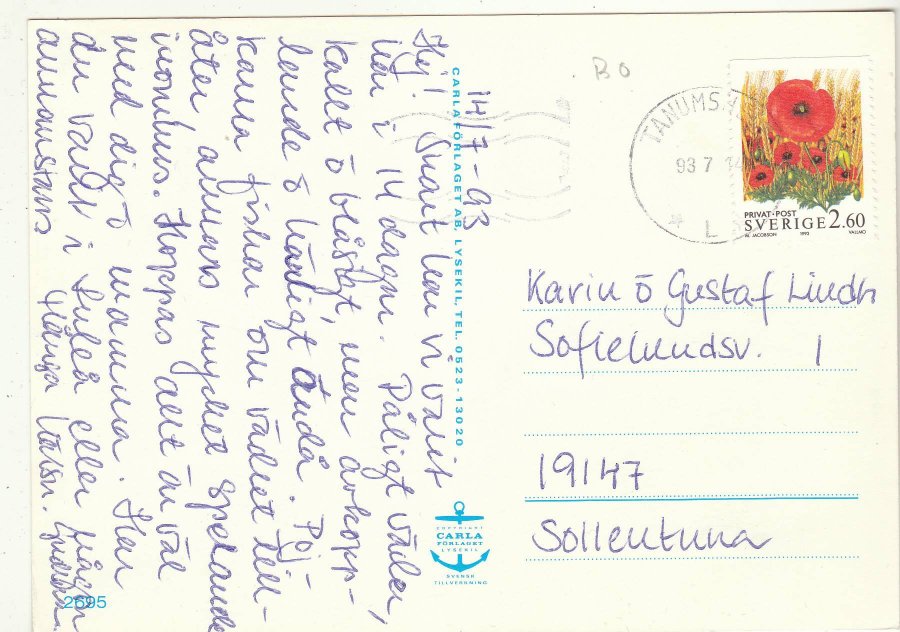 14/7-93
Hej! Snart har vi varit
här i 14 dagar. Dåligt väder,
kallt o blåsigt, men avkopp-
lande o härligt ändå. Poj-
karna fiskar om vädret till-
åter annars mycket spelande
inomhus. Hoppas allt är väl
med dig o mamma. Har
du varit i Luleå eller någon
annanstans
Många hälsn.
CARLA FÖRLAGET AB, LYSEKIL, TEL. 0523-13020
COPYRIGHT
CARLA
FÖRLAGET
LYSEKIL
SVENSK
TILLVERKNING
2695
BO
TANUMS
93 7 14
* L
PRIVAT·POST
SVERIGE 2.60
M. JACOBSON 1993 VALLMO
Karin o Gustaf Lindh
Sofielundsv. 1
19147
Sollentuna